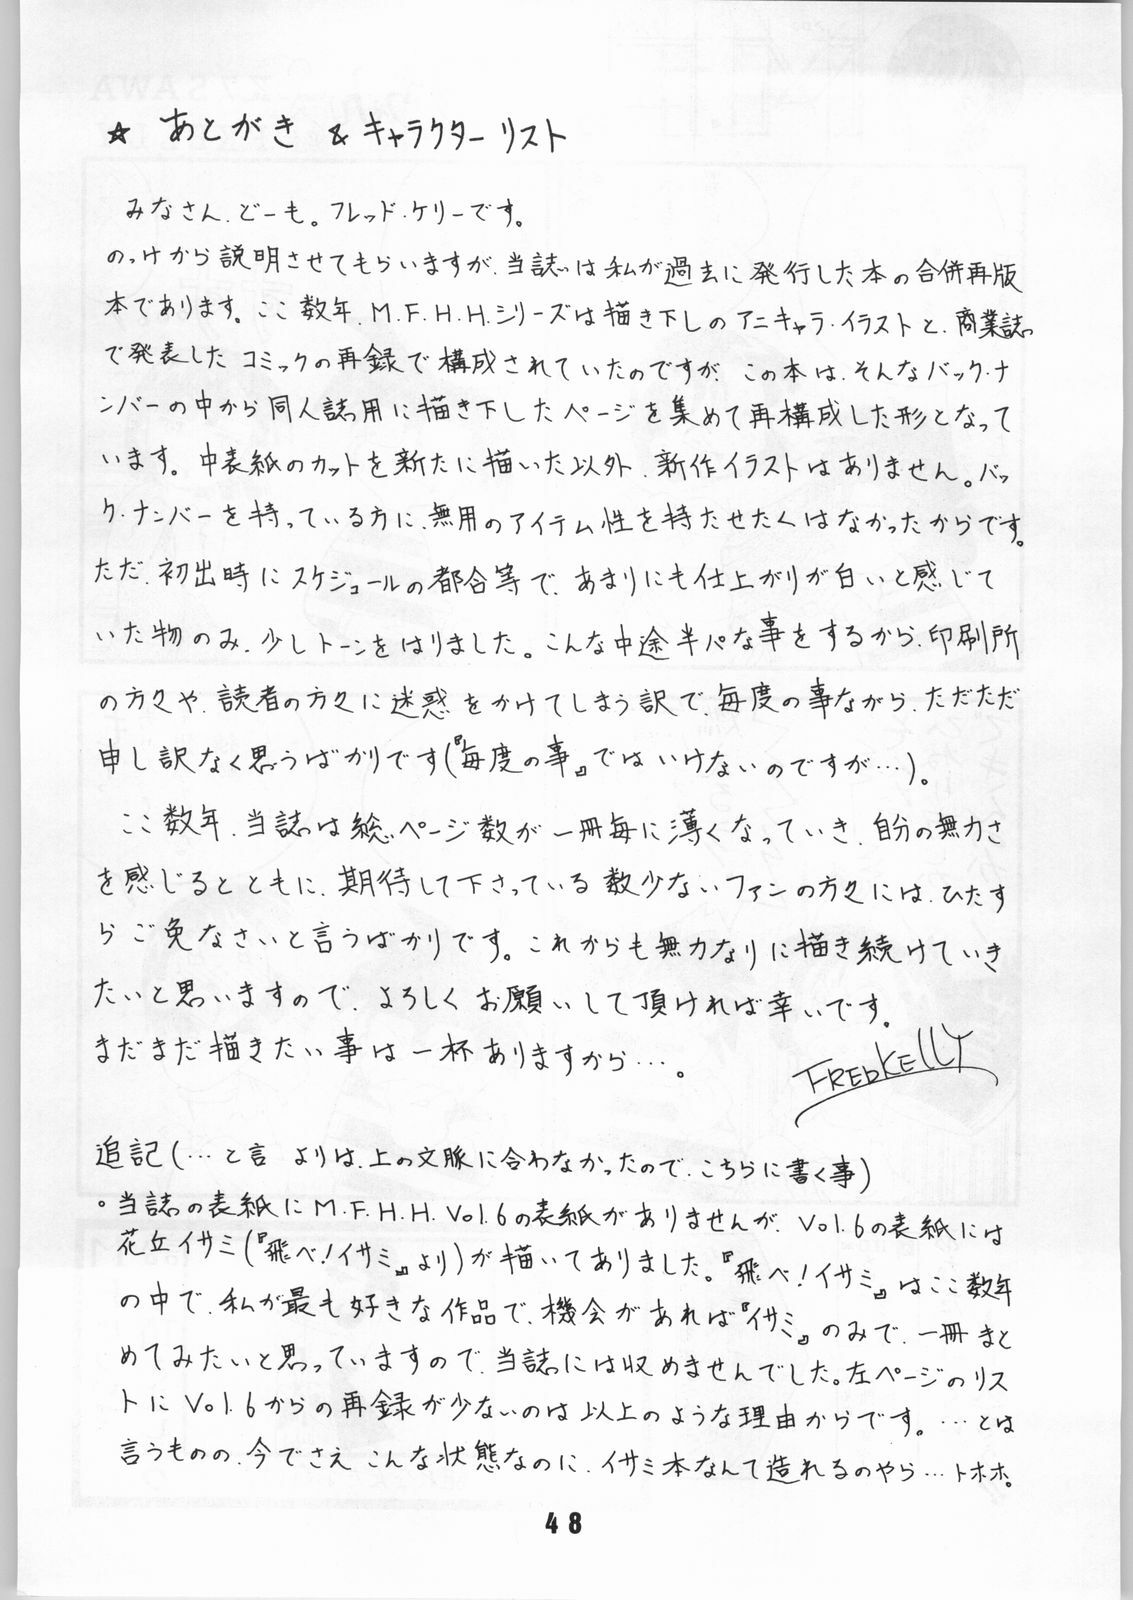 ☆ あとがき & キャラクターリスト
みなさん、どーも。フレッド・ケリーです。
のっけから説明させてもらいますが、当誌は私が過去に発行した本の合併再版
本であります。ここ数年、M.F.H.H.シリーズは描き下しのアニキャラ・イラストと、商業誌
で発表したコミックの再録で構成されていたのですが、この本は、そんなバック・ナ
ンバーの中から同人誌用に描き下したページを集めて再構成した形となって
います。中表紙のカットを新たに描いた以外、新作イラストはありません。バッ
ク・ナンバーを持っている方に、無用のアイテム性を持たせたくはなかったからです。
ただ、初出時にスケジュールの都合等で、あまりにも仕上がりが白いと感じて
いた物のみ、少しトーンをはりました。こんな中途半パな事をするから、印刷所
の方々や、読者の方々に迷惑をかけてしまう訳で、毎度の事ながら、ただただ
申し訳なく思うばかりです(『毎度の事』ではいけないのですが…)。
ここ数年、当誌は総ページ数が一冊毎に薄くなっていき、自分の無力さ
を感じるとともに、期待して下さっている数少ないファンの方々には、ひたす
らご免なさいと言うばかりです。これからも無力なりに描き続けていき
たいと思いますので、よろしくお願いして頂ければ幸いです。
まだまだ描きたい事は一杯ありますから…。
FREDKELLY
追記(…と言 よりは、上の文脈に合わなかったので、こちらに書く事)
。当誌の表紙にM.F.H.H. Vol.6の表紙がありませんが、Vol.6の表紙には
花丘イサミ(『飛べ!イサミ』より)が描いてありました。『飛べ!イサミ』はここ数年
の中で、私が最も好きな作品で、機会があれば『イサミ』のみで、一冊まと
めてみたいと思っていますので、当誌には収めませんでした。左ページのリス
トにVol.6からの再録が少ないのは以上のような理由からです。…とは
言うものの、今でさえこんな状態なのに、イサミ本なんて造れるのやら…トホホ。
48